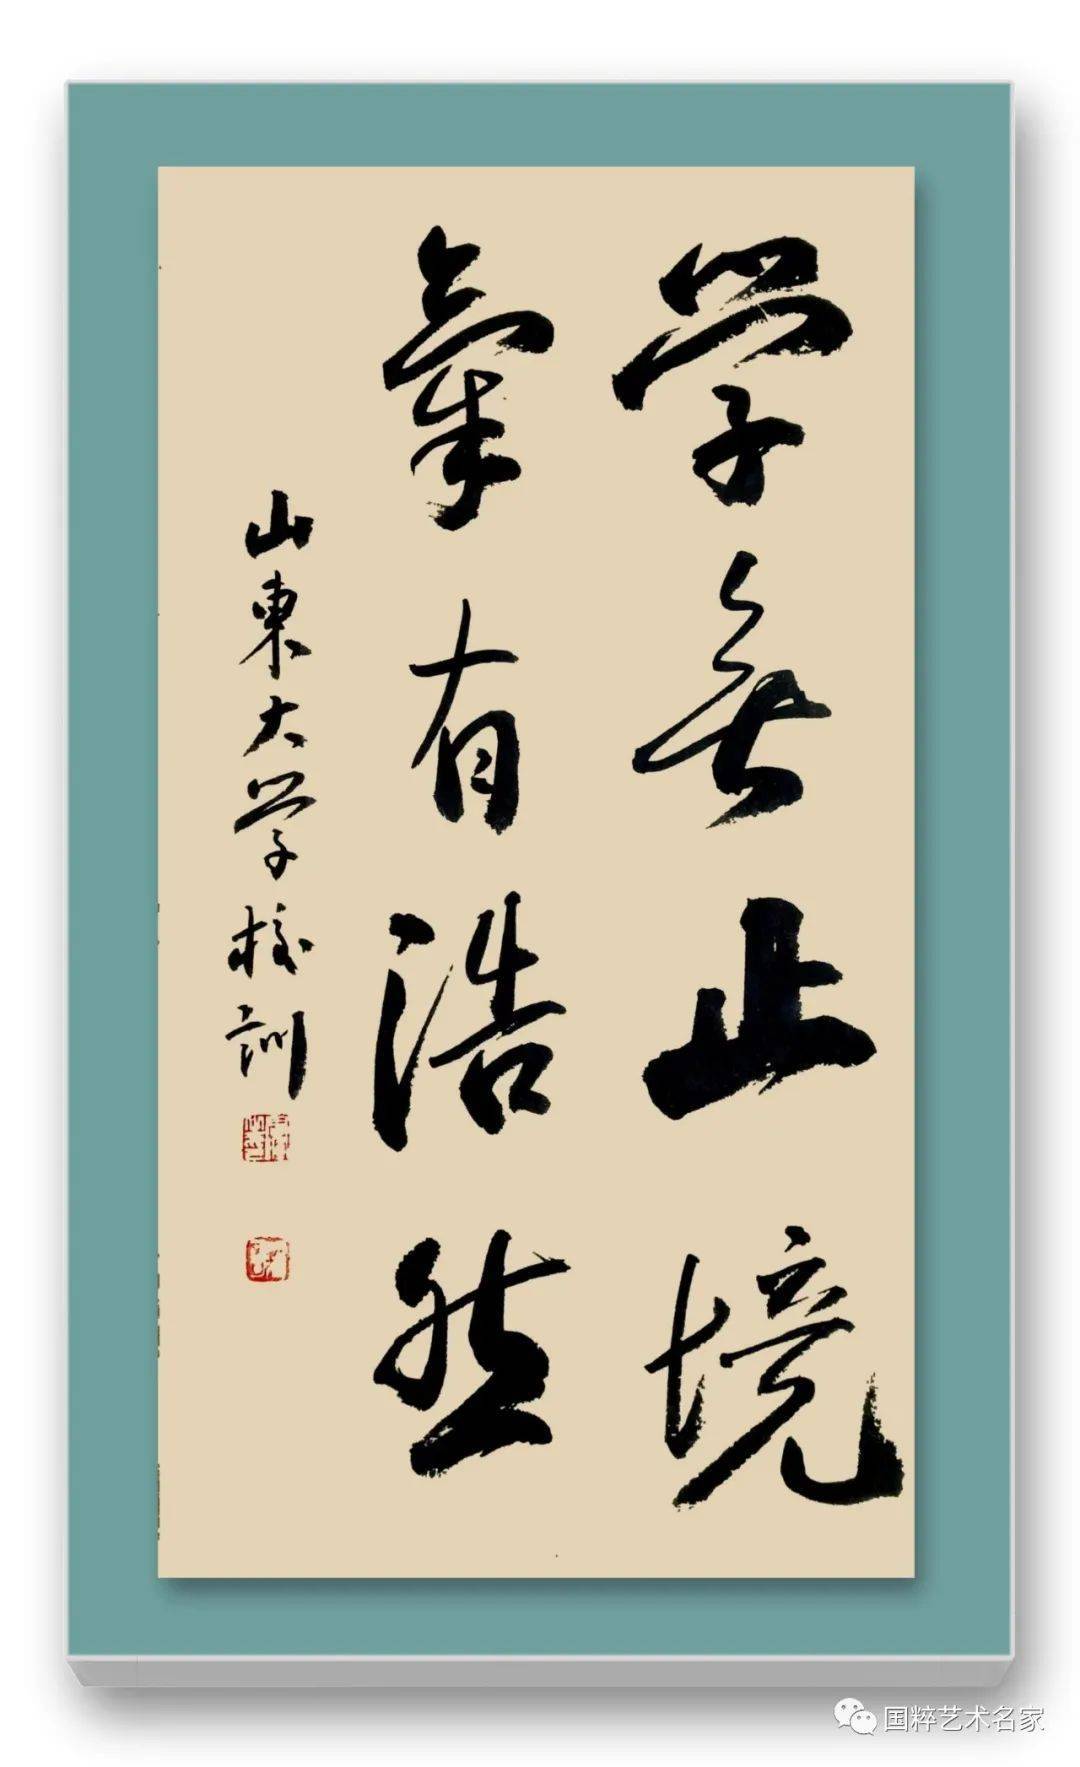 学無止境
氣有浩然
山東大学校訓
国粹艺术名家